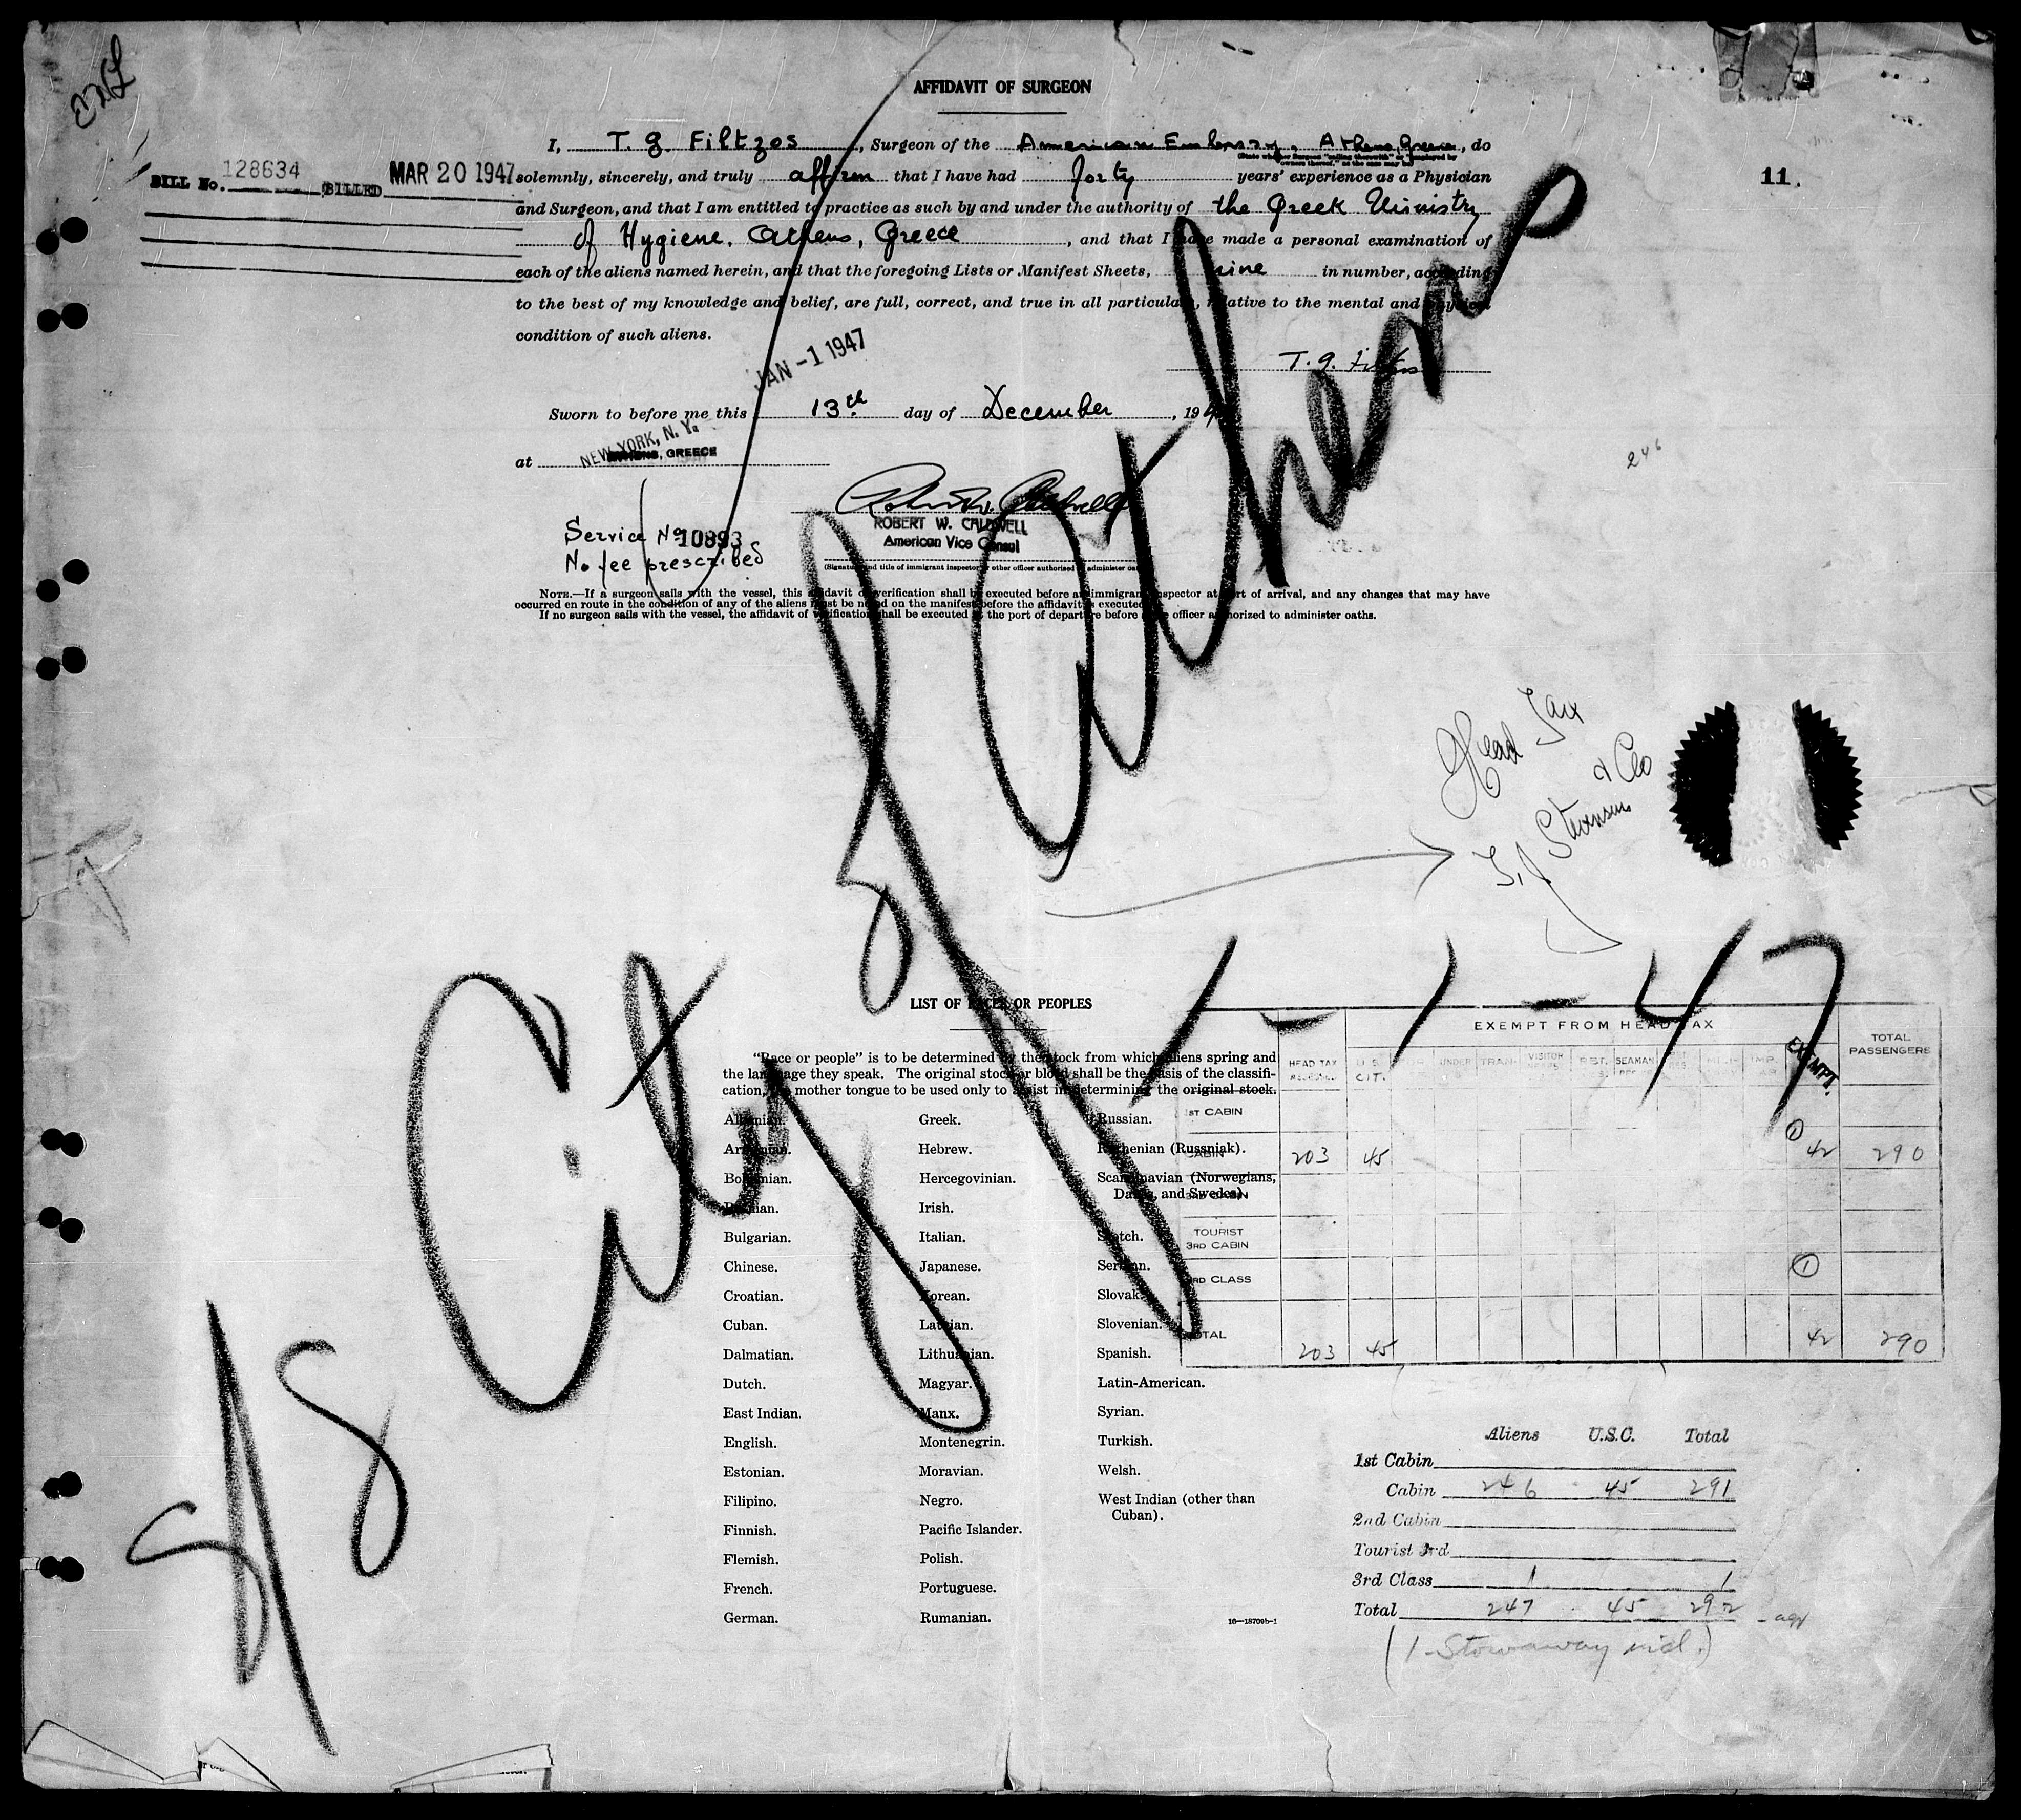 AFFIDAVIT OF SURGEON
I, T. G. Filtzos, Surgeon of the American Embassy, Athens, Greece, do
(State whether Surgeon "sailing therewith" or employed by owners thereof," as the case may be)
BILL No. 128634 BILLED MAR 20 1947
11.
solemnly, sincerely, and truly affirm that I have had forty years' experience as a Physician
and Surgeon, and that I am entitled to practice as such by and under the authority of the Greek Ministry
of Hygiene, Athens, Greece, and that I have made a personal examination of
each of the aliens named herein, and that the foregoing Lists or Manifest Sheets, nine in number, according
to the best of my knowledge and belief, are full, correct, and true in all particulars, relative to the mental and physical
condition of such aliens.
JAN -1 1947
T. G. Filtzos
Sworn to before me this 13th day of December, 194
NEW YORK, N. Y.
at ATHENS, GREECE
246
ROBERT W. CALDWELL
American Vice Consul
Service No 10893
No fee prescribed
(Signature and title of immigrant inspector or other officer authorized to administer oaths)
NOTE.—If a surgeon sails with the vessel, this affidavit of verification shall be executed before an immigrant inspector at port of arrival, and any changes that may have
occurred en route in the condition of any of the aliens must be noted on the manifest before the affidavit is executed.
If no surgeon sails with the vessel, the affidavit of verification shall be executed at the port of departure before an officer authorized to administer oaths.
S/S City of Athens
1-1-47
Head Tax
T. J. Stevenson & Co
LIST OF RACES OR PEOPLES
"Race or people" is to be determined by the stock from which aliens spring and
the language they speak. The original stock or blood shall be the basis of the classifi-
cation, the mother tongue to be used only to assist in determining the original stock.
Albanian.
Armenian.
Bohemian.
Bosnian.
Bulgarian.
Chinese.
Croatian.
Cuban.
Dalmatian.
Dutch.
East Indian.
English.
Estonian.
Filipino.
Finnish.
Flemish.
French.
German.
Greek.
Hebrew.
Hercegovinian.
Irish.
Italian.
Japanese.
Korean.
Latvian.
Lithuanian.
Magyar.
Manx.
Montenegrin.
Moravian.
Negro.
Pacific Islander.
Polish.
Portuguese.
Rumanian.
Russian.
Ruthenian (Russniak).
Scandinavian (Norwegians,
Danes, and Swedes).
Scotch.
Serbian.
Slovak.
Slovenian.
Spanish.
Latin-American.
Syrian.
Turkish.
Welsh.
West Indian (other than
Cuban).
16—18709b-1
EXEMPT FROM HEAD TAX
HEAD TAX ASSESSED U.S. CIT. UNDER TRAN. VISITOR SEAMAN EXEMPT. TOTAL PASSENGERS
1ST CABIN
CABIN 203 45 1 42 290
3RD CABIN
TOURIST
3RD CABIN
3RD CLASS 1
TOTAL 203 45 42 290
Aliens U.S.C. Total
1st Cabin
Cabin 246 45 291
2nd Cabin
Tourist 3rd
3rd Class 1 1
Total 247 45 292
(1-Stowaway incl.)